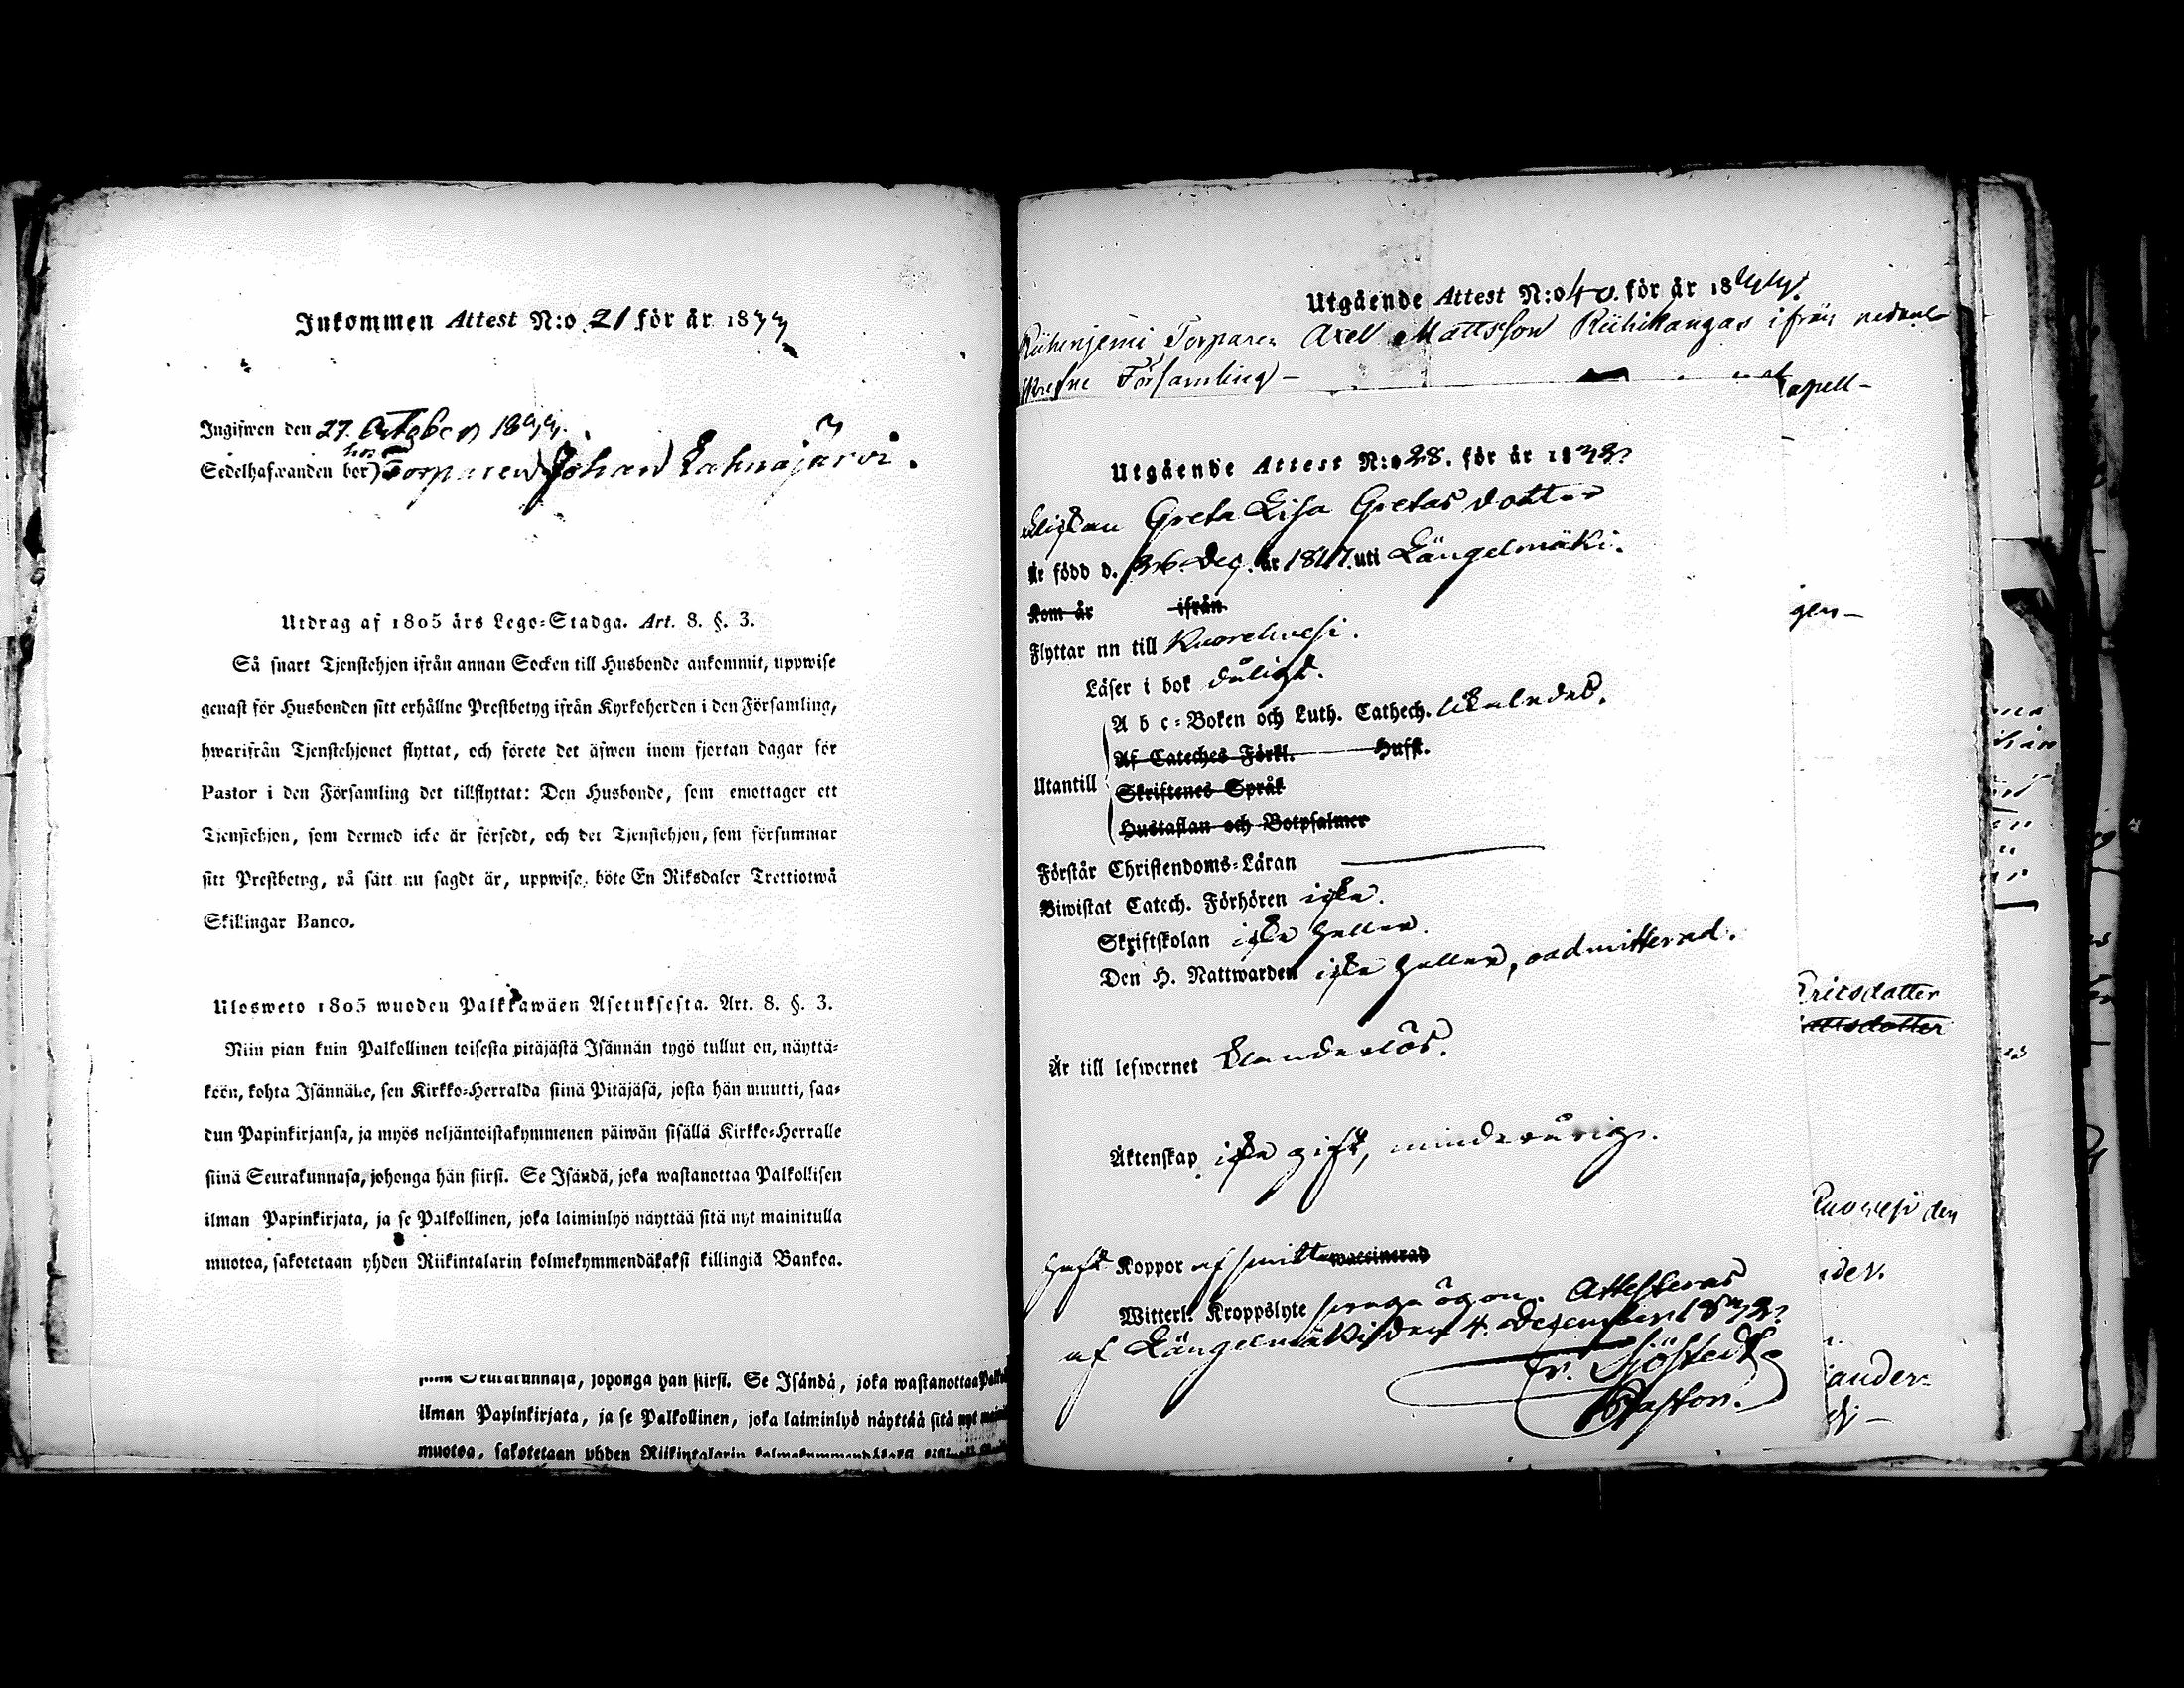 Inkommen Attest N:o 21 för år 1833
Ingifwen den 27. October 18
Sedelhafwanden bor hos Torparen Johan Lahnajärvi.
Utdrag af 1805 års Lego-Stadga. Art. 8. §. 3.
Så snart Tjenstehjon ifrån annan Socken till Husbonde ankommit, uppwise
genast för Husbonden sitt erhållne Prestbetyg ifrån Kyrkoherden i den Församling,
hwarifrån Tjenstehjonet flyttat, och förete det äfwen inom fjortan dagar för
Pastor i den Församling det tillflyttat: Den Husbonde, som emottager ett
Tjenstehjon, som dermed icke är försedt, och det Tjenstehjon, som försummar
sitt Prestbetyg, på sätt nu sagdt är, uppwisa, böte En Riksdaler Trettiotwå
Skillingar Banco.
Ulosweto 1805 wuoden Palkkawäen Asetuksesta. Art. 8. §. 3.
Niin pian kuin Palkollinen toisesta pitäjästä Isännän tygö tullut on, näyttä-
köön, kohta Isännälle, sen Kirkko-Herralda siinä Pitäjäsä, josta hän muutti, saa-
dun Papinkirjansa, ja myös neljäntoistakymmenen päiwän sisällä Kirkko-Herralle
siinä Seurakunnasa, johonga hän siirsi. Se Isändä, joka wastanottaa Palkollisen
ilman Papinkirjata, ja se Palkollinen, joka laiminlyö näyttää sitä nyt mainitulla
muotoa, sakotetaan yhden Riikintalarin kolmekymmendäkaksi killingiä Bankoa.
siinä Seurakunnasa, johonga hän siirsi. Se Isändä, joka wastanottaa
ilman Papinkirjata, ja se Palkollinen, joka laiminlyö näyttää sitä nyt
muotoa, sakotetaan yhden Riikintalarin
Utgående Attest N:o 40. för år 18
Torparen Axel Mattsson Riihikangas ifrån
Församling –
apell –
Utgående Attest N:o 28. för år 18
Flickan Greta Lisa Gretas dotter
Är född d. 26. Dec. år 1817. uti Längelmäki.
Kom år ifrån
Flyttar nu till Kuorehvesi.
Läser i bok dåligt.
A b c-Boken och Luth. Cathech. likaledes.
Utantill
Af Cateches Förkl. Husfl.
Skriftenes Språk
Hustaflan och Botpsalmer
Förstår Christendoms-Läran
Biwistat Catech. Förhören icke.
Skriftskolan icke heller.
Den H. Nattwarden icke heller, oadmitterad.
Är till lefwernet klanderlös.
Äktenskap icke gift, minderårig.
haft Koppor af smitta waccinerad
Witterl. Kroppslyte svaga ögon. Attesteras
af Längelmäki den 4. December 18
Fr. Sjöstedt
Pastor.
gen –
Ericsdotter
Ruovesi den